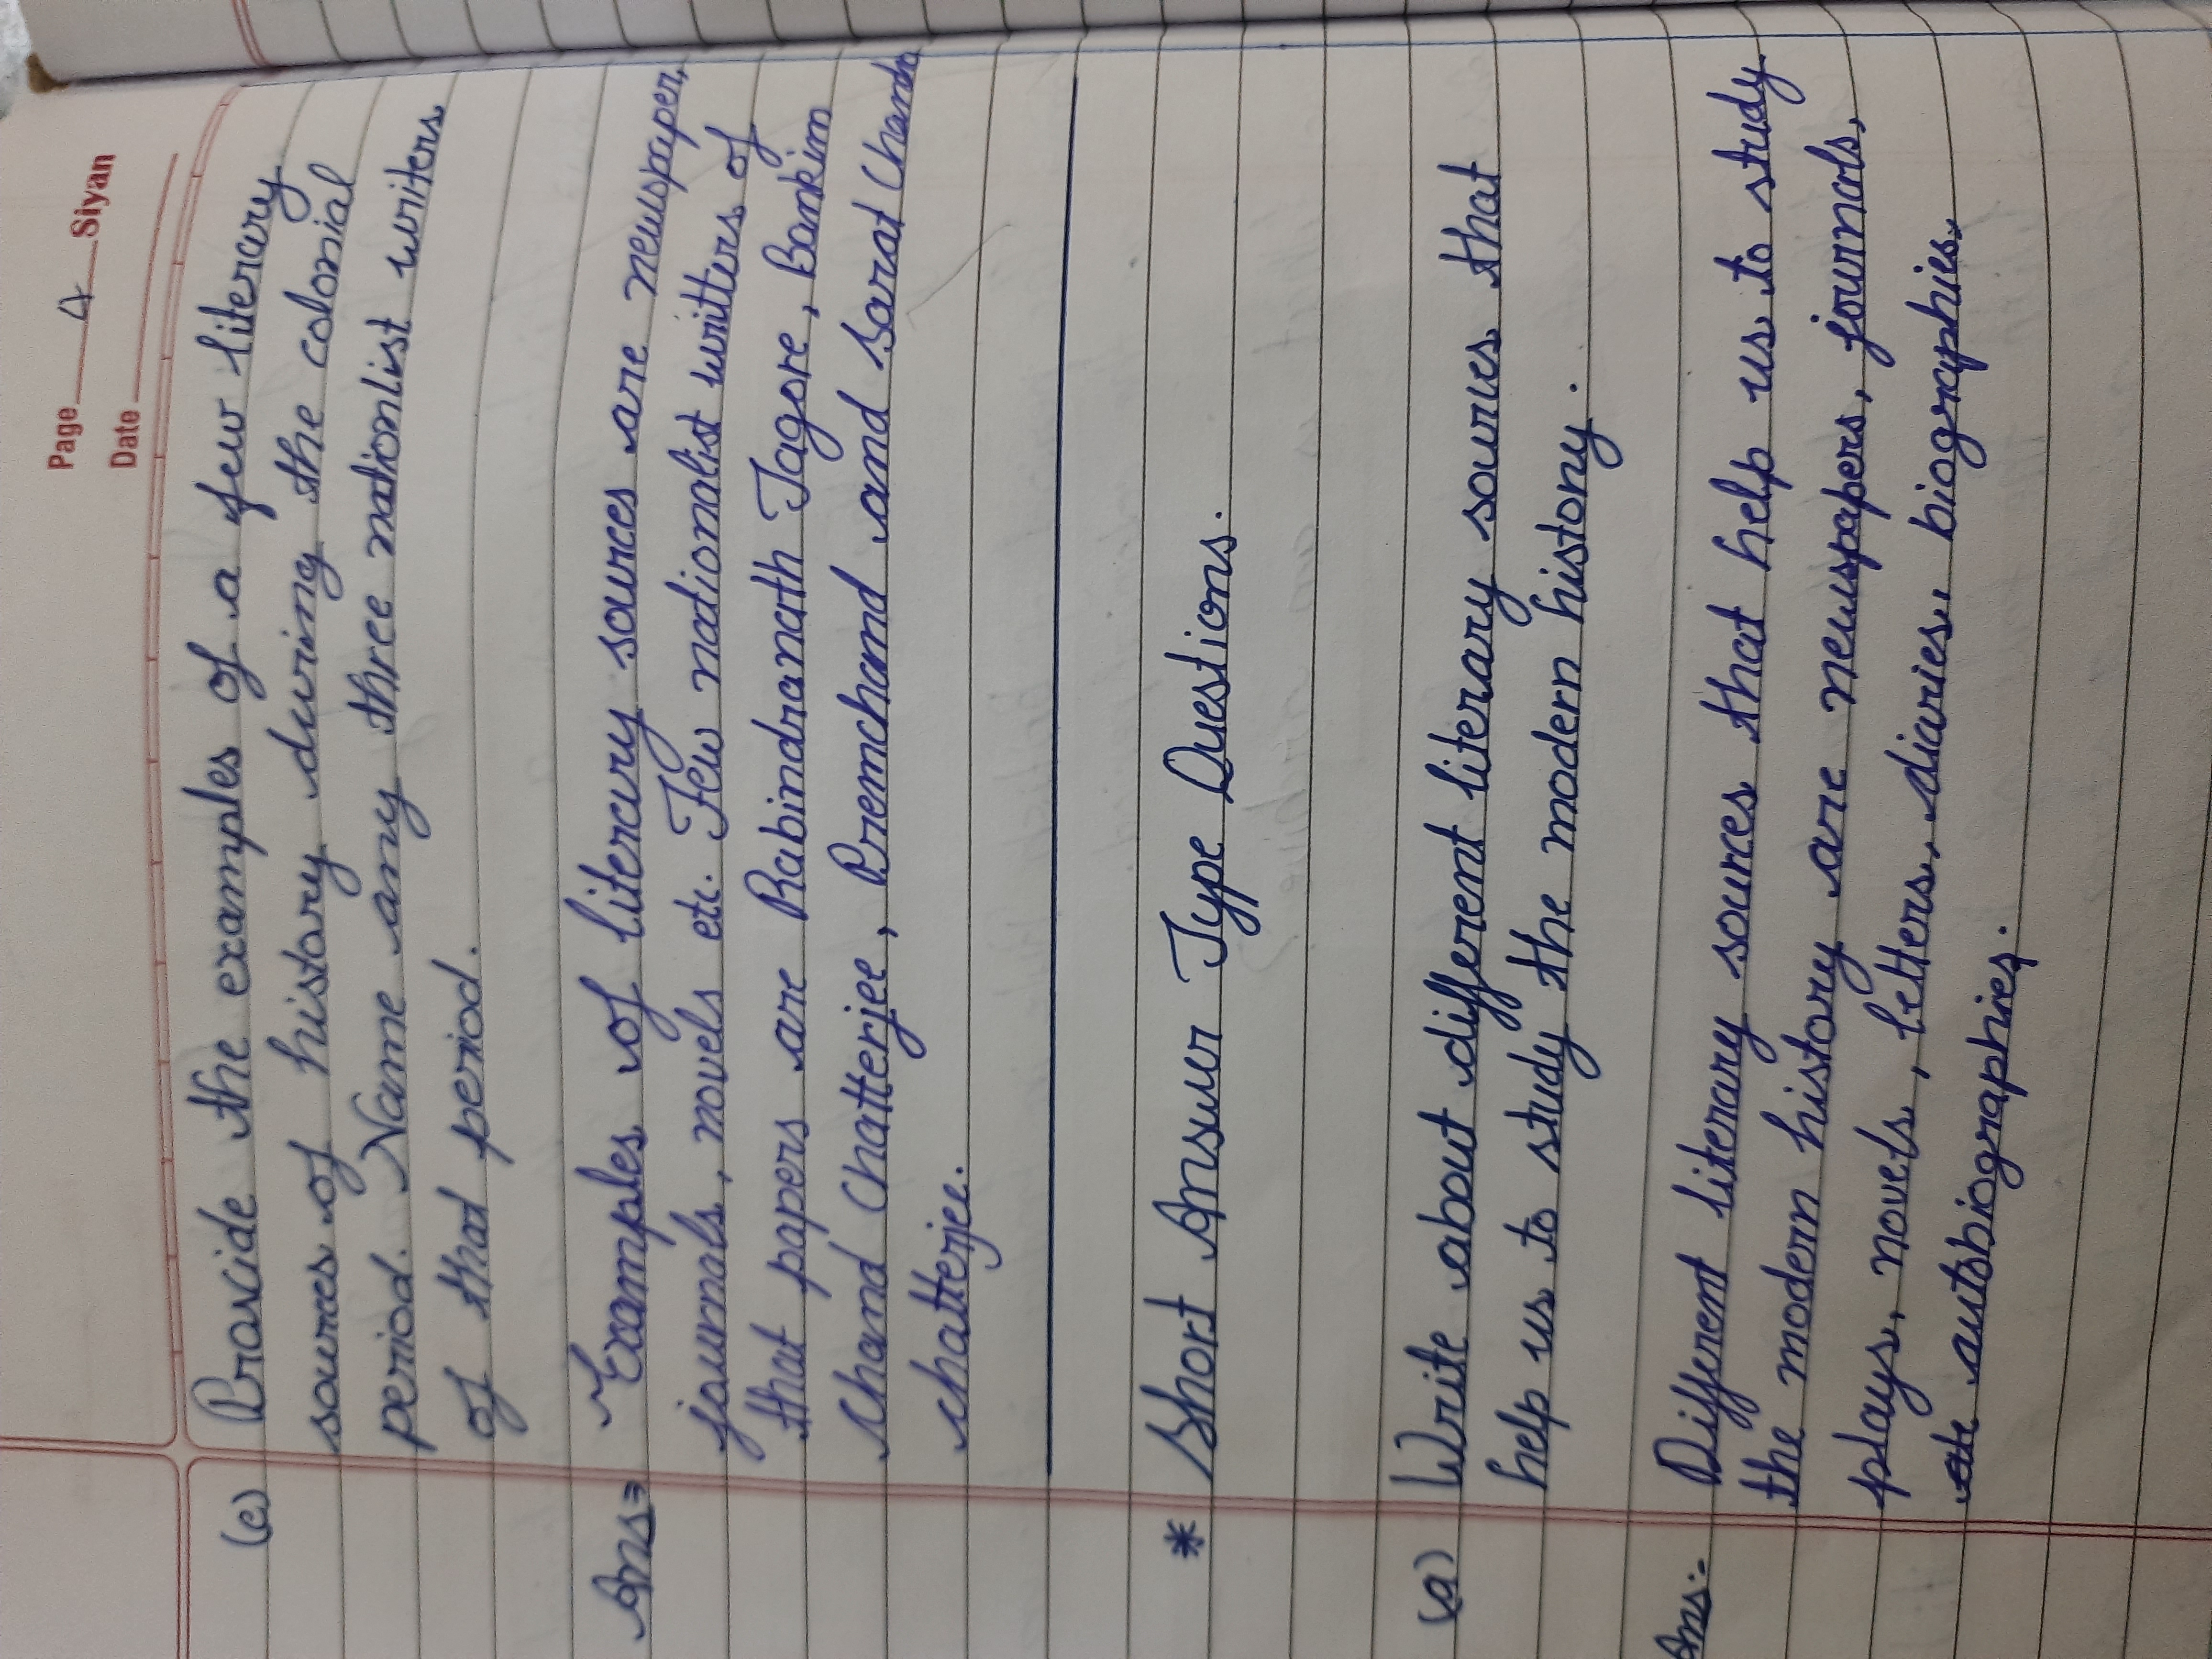 Page 4 Siyan
Date
(e) Provide the examples of a few literary
sources of history during the colonial
period. Name any three nationlist writers
of that period.
Ans= Examples of literary sources are newspaper,
journals, novels etc. Few nationalist writters of
that papers are Rabindranath Tagore, Bankim
Chand Chatterjee, Premchand and Sarat Chand
chatterjee.
* Short Answer Type Questions.
(a) Write about different literary sources that
help us to study the modern history.
Ans:- Different literary sources that help us to study
the modern history are newspapers, journals,
plays, novels, letters, diaries, biographies,
autobiographies.